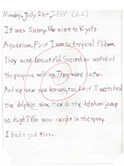 Monday, July 21st, 2014 (02)
It was Sunny. We went to Kyoto
Aquarium. First I saw tropical fishes.
They were beautiful. Second we watched
the penguins walking. They were cute.
And we saw sea horses, too. Next I watched
the dolphin show. How do the dolphins jump
so high? We were caught in the spray.
I had a good time.